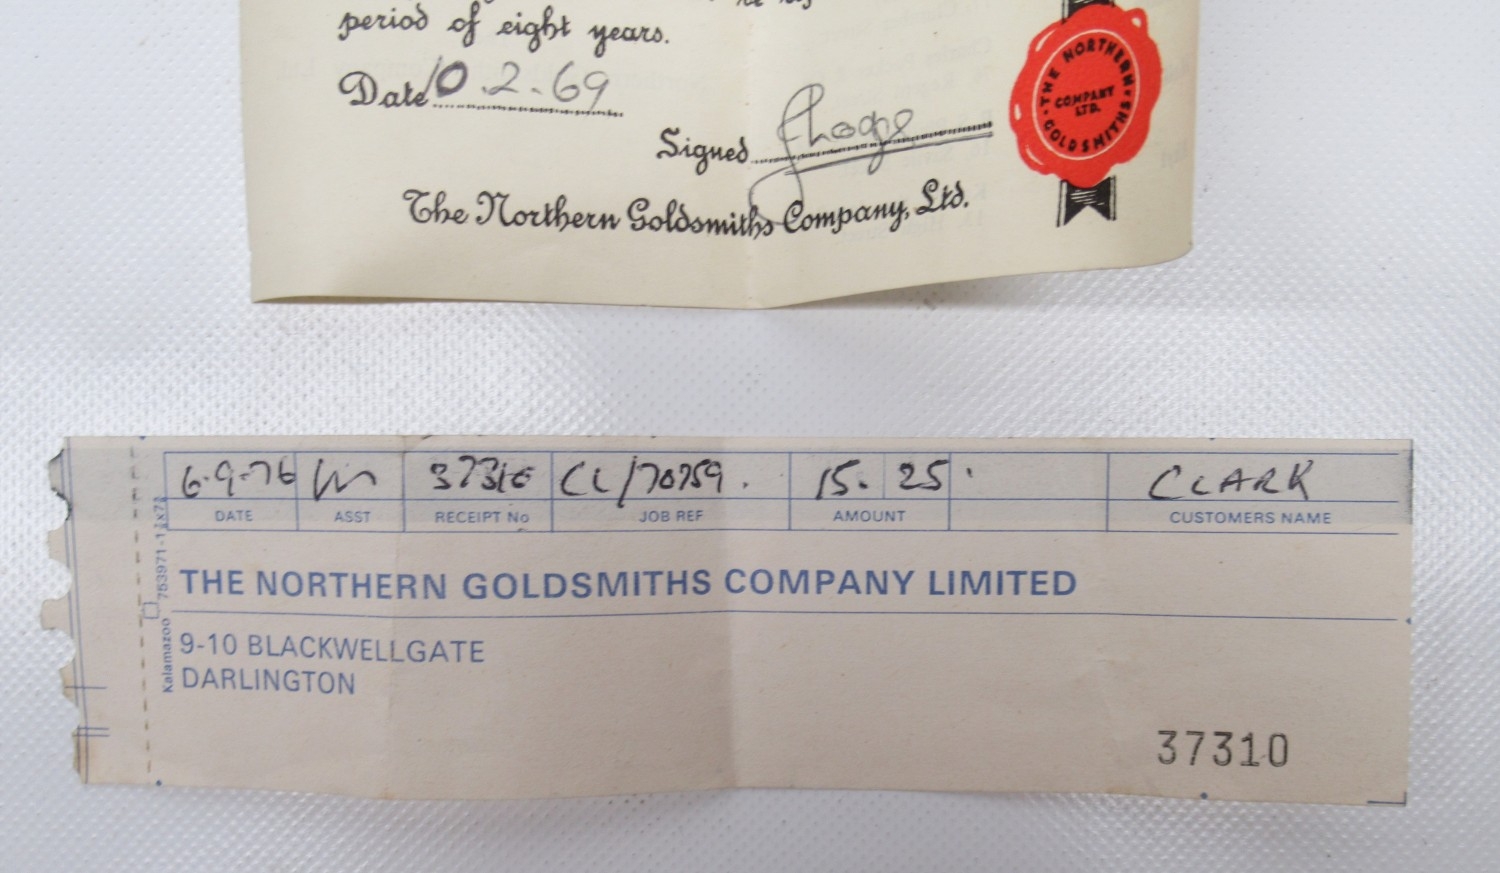 period of eight years.
Date 10.2.69
Signed
The Northern Goldsmiths Company, Ltd.
THE NORTHERN
COMPANY
LTD.
GOLDSMITHS
6.9.76 37310 CL/70759. 15. 25 CLARK
DATE ASST RECEIPT No JOB REF AMOUNT CUSTOMERS NAME
THE NORTHERN GOLDSMITHS COMPANY LIMITED
9-10 BLACKWELLGATE
DARLINGTON
37310
Kalamazoo